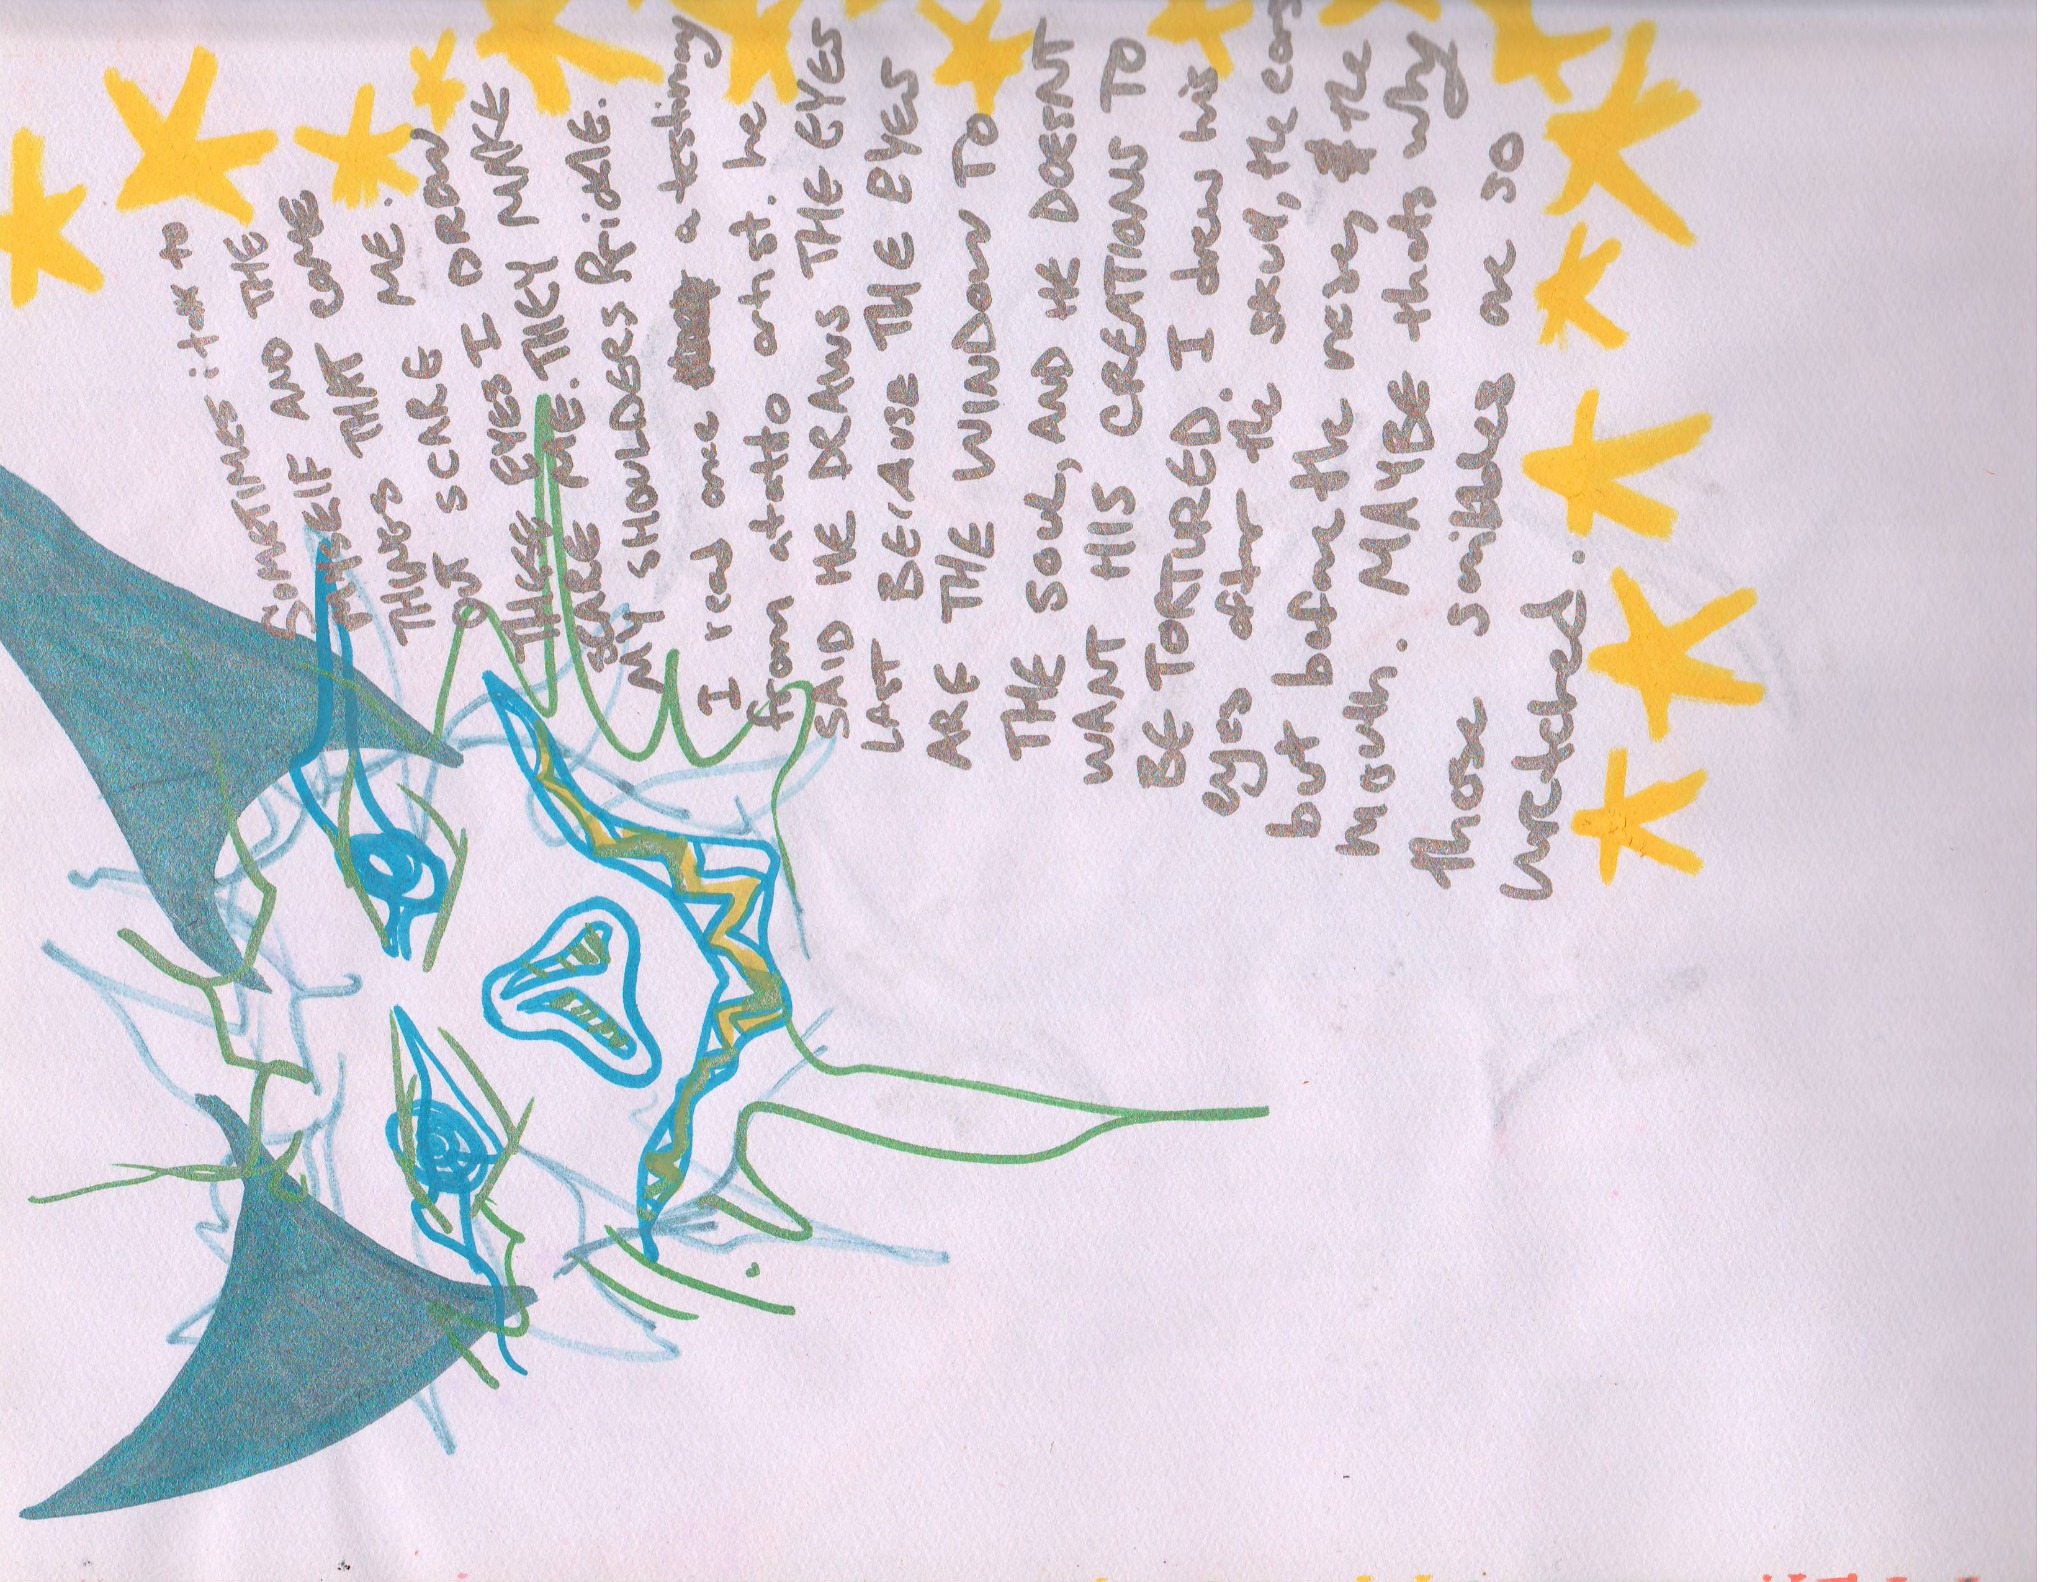 SOMETIMES i talk to
MYSELF AND THE
THINGS THAT COME
OUT SCARE ME.
THESE EYES I DRAW
SCARE ME. THEY MAKE
MY SHOULDERS PRICKLE.
I read once a
from a tatto artist. he
SAID HE DRAWS THE EYES
LAST BECAUSE THE EYES
ARE THE WINDOW TO
THE SOUL, AND HE DOESNT
WANT HIS CREATIONS TO
BE TORTURED. I draw his
eyes after the skull, the ears
but before the nose, & the
mouth. MAYBE thats why
those smiles are so
wretched.